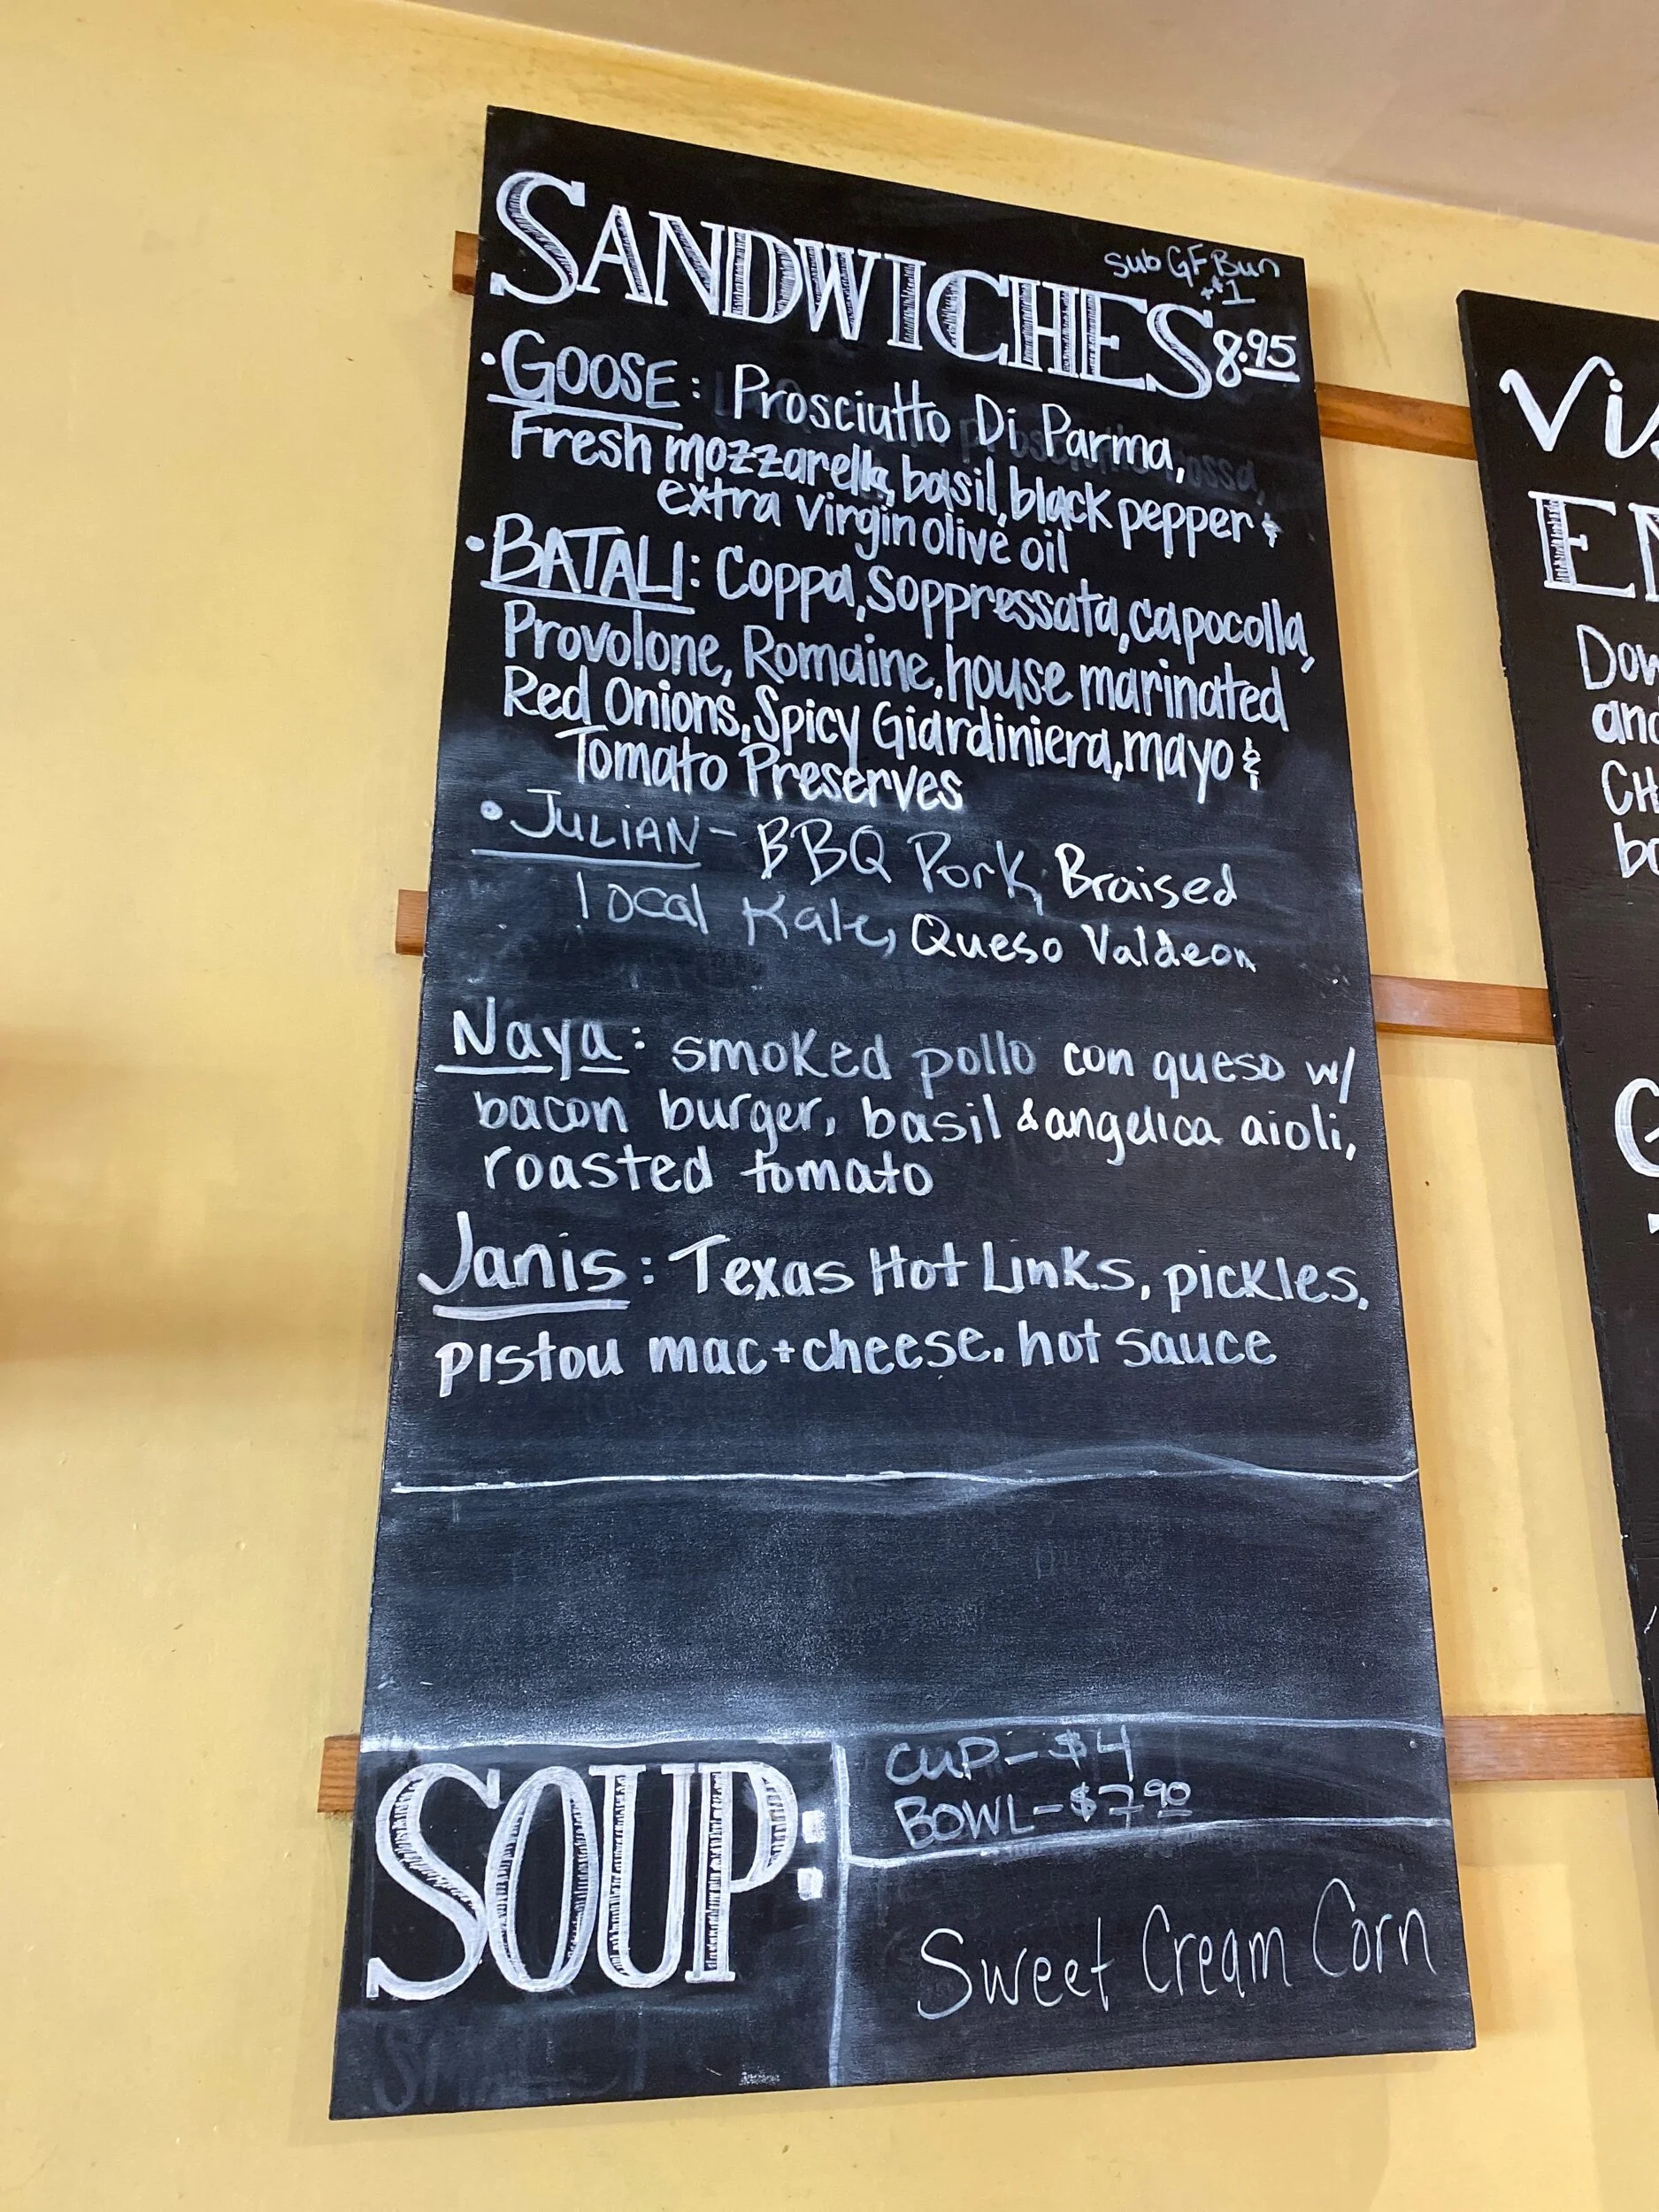 SANDWICHES
sub GF Bun
+$1
8.95
• GOOSE: Prosciutto Di Parma,
Fresh mozzarella, basil, black pepper &
extra virgin olive oil
• BATALI: Coppa, Soppressata, capocolla,
Provolone, Romaine, house marinated
Red Onions, Spicy Giardiniera, mayo &
Tomato Preserves
• JULIAN - BBQ Pork, Braised
local Kale, Queso Valdeon
Naya: smoked pollo con queso w/
bacon burger, basil & angelica aioli,
roasted tomato
Janis: Texas Hot Links, pickles,
pistou mac + cheese, hot sauce
SOUP:
CUP - $4
BOWL - $7.90
Sweet Cream Corn
Vis
EN
Dow
and
CH
bo
G